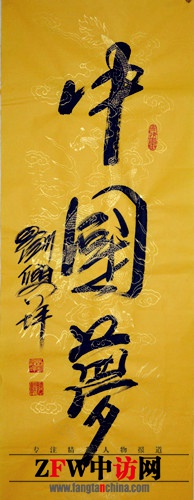 中國夢
劉興祥
专注精英人物报道
ZFW中访网
www.fangtanchina.com